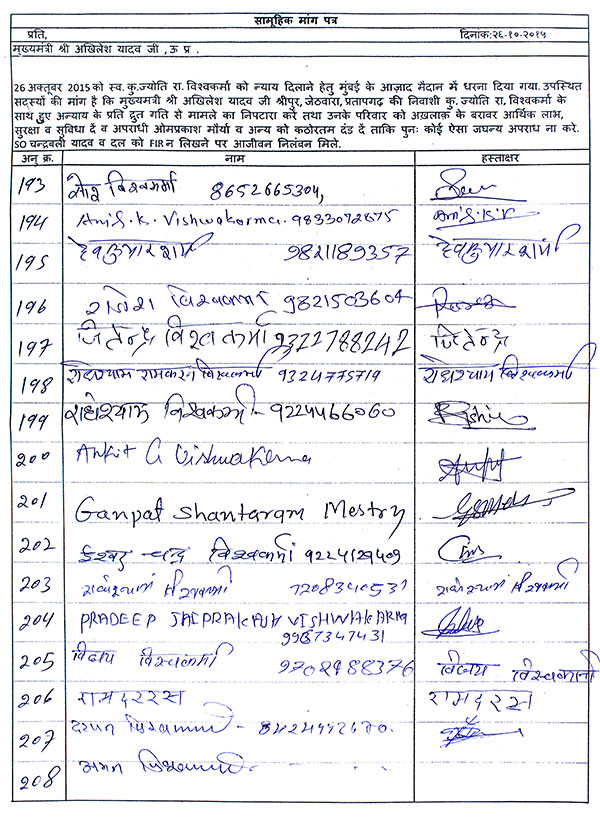 सामूहिक मांग पत्र
प्रति, दिनांक:२६-१०-२०१५
मुख्यमंत्री श्री अखिलेश यादव जी ,ऊ प्र .
26 अक्तूबर 2015 को स्व. कु.ज्योति रा. विश्वकर्मा को न्याय दिलाने हेतु मुंबई के आज़ाद मैदान में धरना दिया गया. उपस्थित
सदस्यों की मांग है कि मुख्यमंत्री श्री अखिलेश यादव जी श्रीपुर, जेठवारा, प्रतापगढ़ की निवाशी कु. ज्योति रा, विश्वकर्मा के
साथ हुए अन्याय के प्रति द्रुत गति से मामले का निपटारा करे तथा उनके परिवार को अख़लाक़ के बराबर आर्थिक लाभ,
सुरक्षा व सुविधा दें व अपराधी ओमप्रकाश मौर्या व अन्य को कठोरतम दंड दें ताकि पुनः कोई ऐसा जघन्य अपराध ना करे.
SO चन्द्रबली यादव व दल को FIR न लिखने पर आजीवन निलंबन मिले.
अनु क्र. नाम हस्ताक्षर
193 विश्वकर्मा 8652665304,
194 Anil.K. Vishwakarma. 9833092675 Anil.K.V
195 देवकुमार शर्मा 9821189357 देवकुमार शर्मा
196 राजेश विश्वकर्मा 9821503604
197 जितेन्द्र विश्वकर्मा 9322788242 जितेन्द्र
198 राधेश्याम रामकरन विश्वकर्मा 9324775719 राधेश्याम विश्वकर्मा
199 राधेश्याम विश्वकर्मा - 9224466060
200 Ankit G Vishwakarma
201 Ganpat Shantaram Mestry
202 ईश्वर चन्द्र विश्वकर्मा 9224129409
203 राधेश्याम विश्वकर्मा 7208340531 राधेश्याम विश्वकर्मा
204 PRADEEP JAIPRAKASH VISHWAKARMA
9967347431
205 विजय विश्वकर्मा 9702988376 विजय विश्वकर्मा
206 रामदरस रामदरस
207 विश्वकर्मा -
208 विश्वकर्मा -